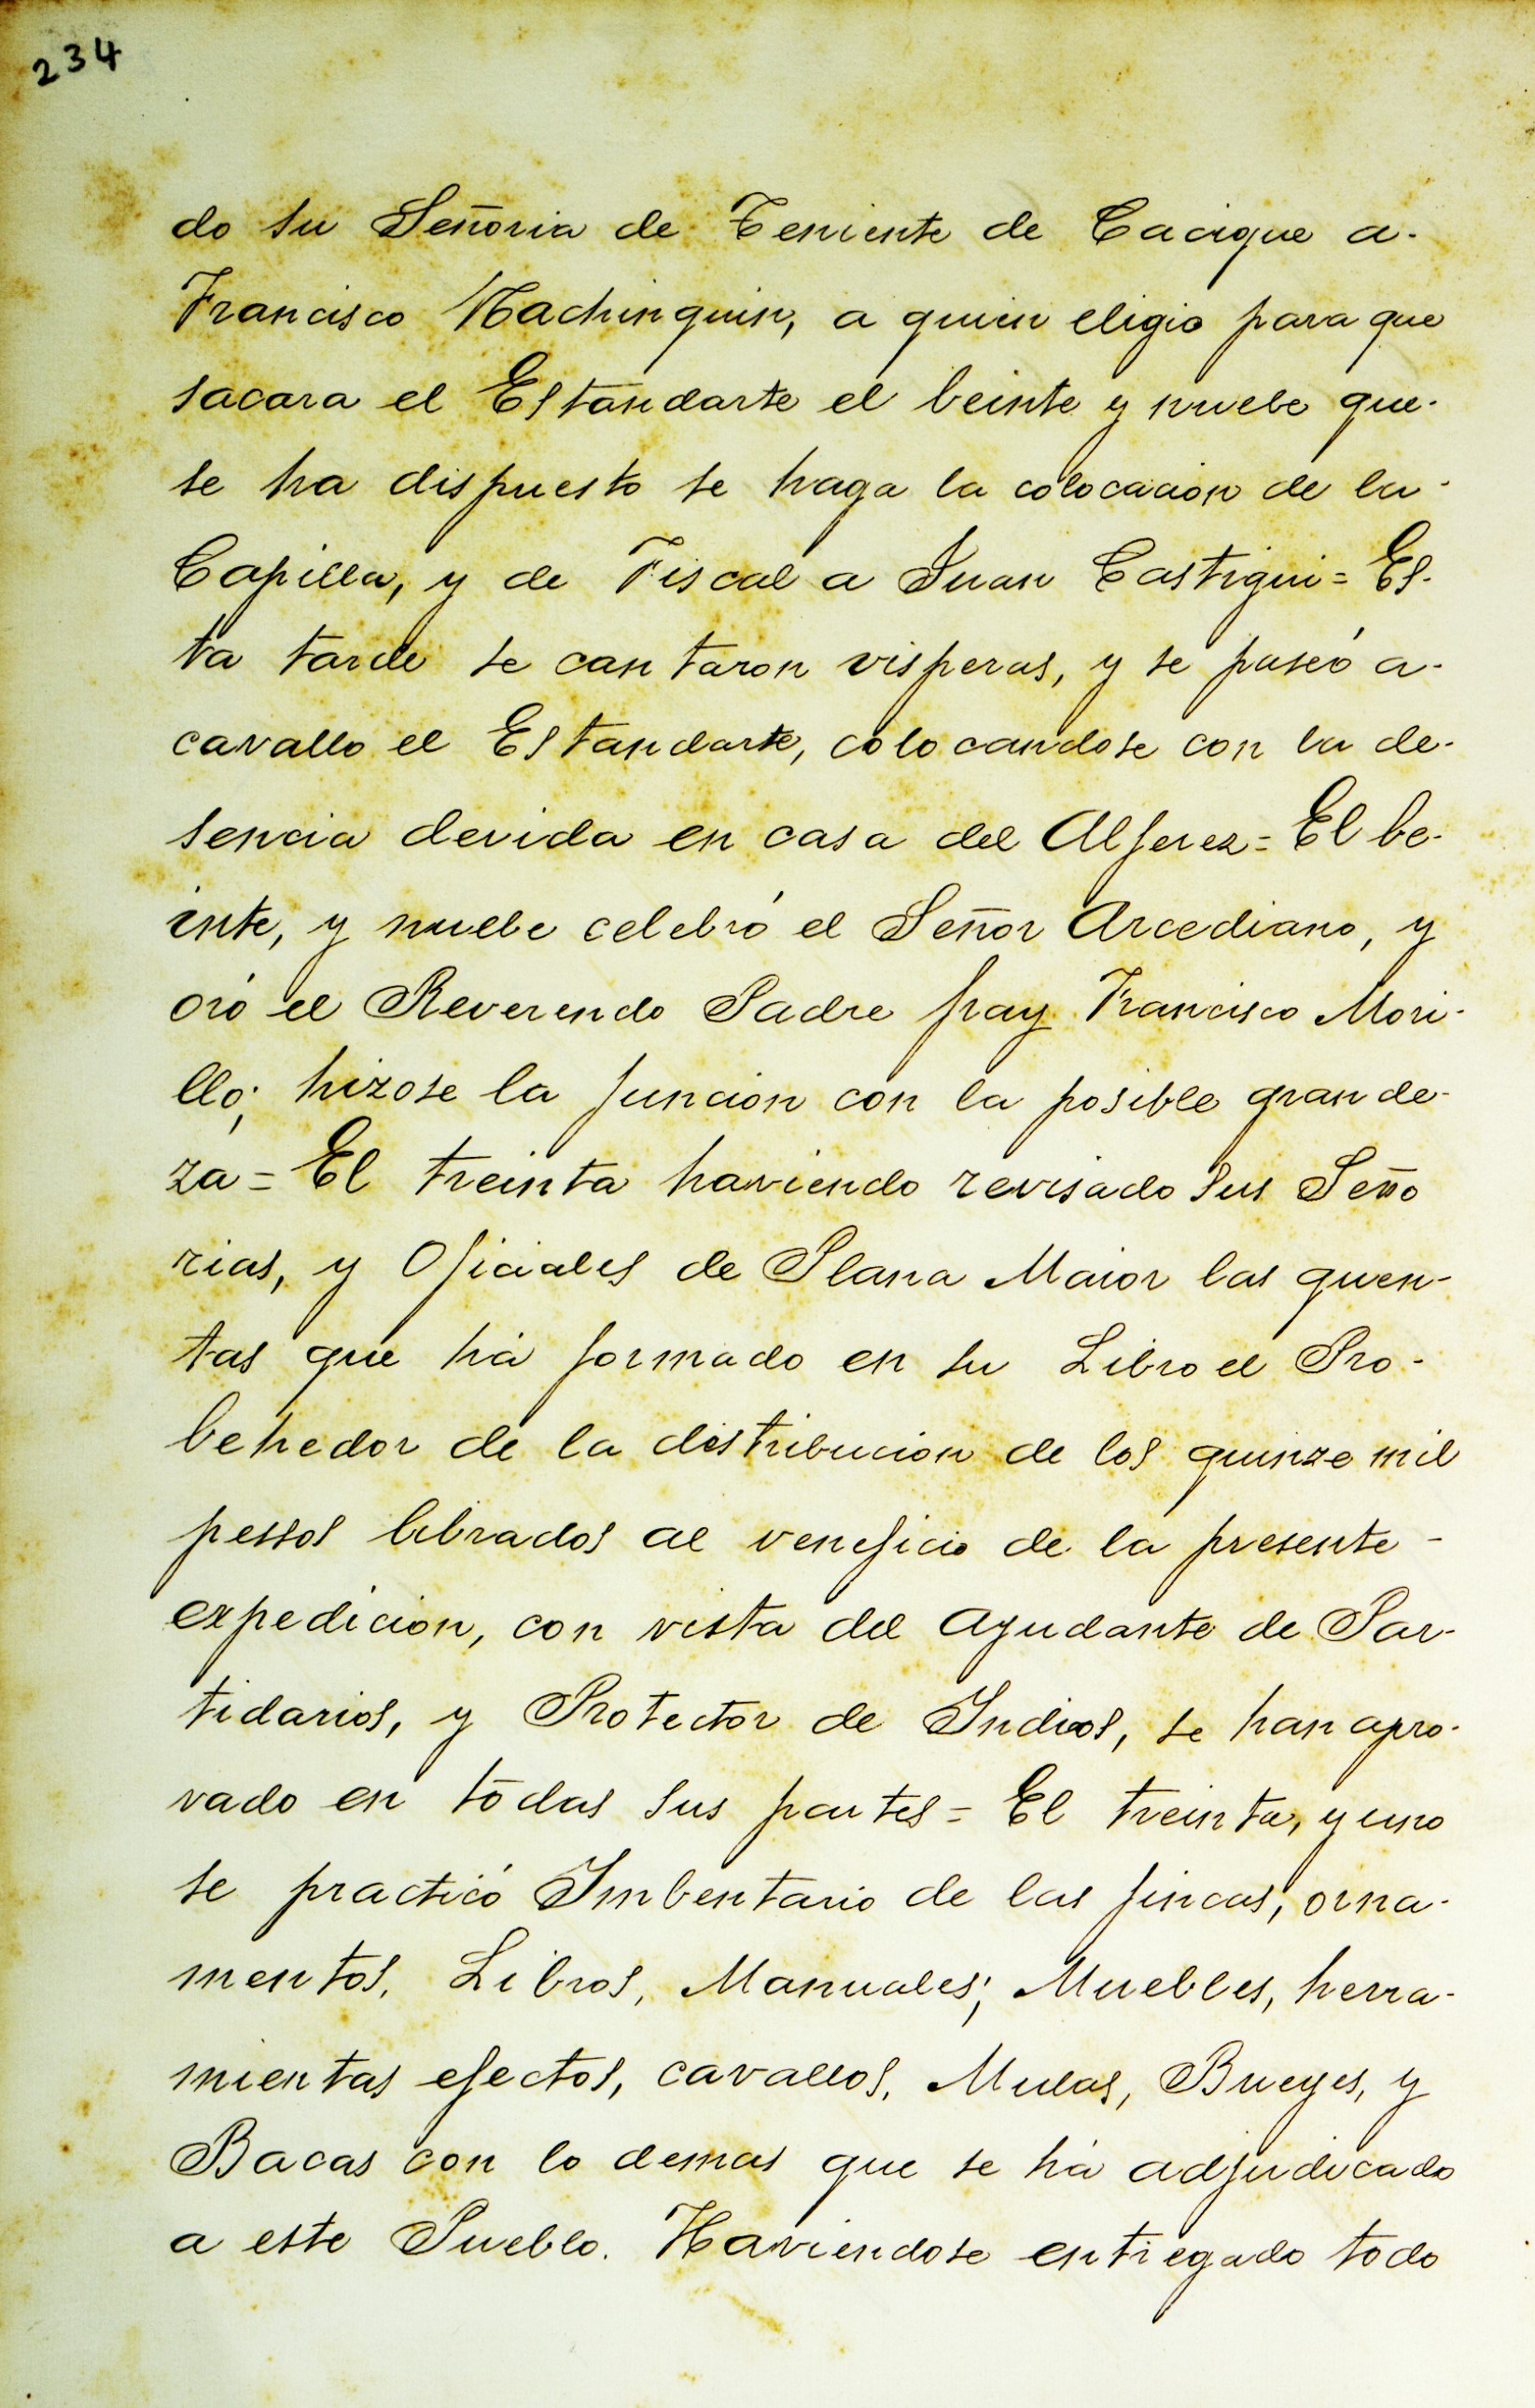 234
do su Señoria de Teniente de Cacique a-
Francisco Nachinquin, a quien eligio para que
sacara el Estandarte el beinte y nuebe que-
se ha dispuesto se haga la colocacion de la-
Capilla, y de Fiscal a Juan Castiqui= Es-
ta tarde se cantaron visperas, y se paseó a-
cavallo el Estandarte, colocandose con la de-
sencia devida en casa del Alferez= El be-
inte, y nuebe celebró el Señor Arcediano, y
oró el Reverendo Padre fray Francisco Mori-
llo; hizose la funcion con la posible grande-
za= El treinta haviendo revisado sus Seño
rias, y Oficiales de Plana Maior las quen-
tas que há formado en su Libro el Pro-
behedor de la distribucion de los quinze mil
pessos librados al veneficio de la presente-
expedicion, con vista del Ayudante de Par-
tidarios, y Protector de Indios, se han apro-
vado en todas sus partes= El treinta, y uno
se practicó Imbentario de las fincas, orna-
mentos, Libros, Manuales; Muebles, herra-
mientas efectos, cavallos, Mulas, Bueyes, y
Bacas con lo demas que se há adjudicado
a este Pueblo. Haviendose entregado todo